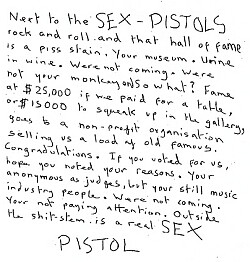 Next to the SEX-PISTOLS
rock and roll and that hall of fame
is a piss stain. Your museum. Urine
in wine. Were not coming. Were
not your monkey and so what? Fame
at $25,000 if we paid for a table,
or $15000 to squeak up in the gallery
goes to a non-profit organisation
selling us a load of old famous.
Congratulations. If you voted for us,
hope you noted your reasons. Your
anonymous as judges, but your still music
industry people. Were not coming.
Your not paying attention. Outside
the shit-stem is a real SEX
PISTOL